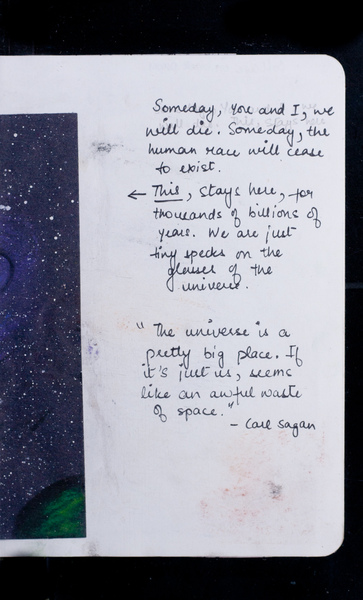 Someday, you and I, we
will die. Someday, the
human race will cease
to exist.
← This, stays here, for
thousands of billions of
years. We are just
tiny specks on the
glasses of the
universe.
" The universe is a
pretty big place. If
it's just us, seems
like an awful waste
of space."
- Carl Sagan